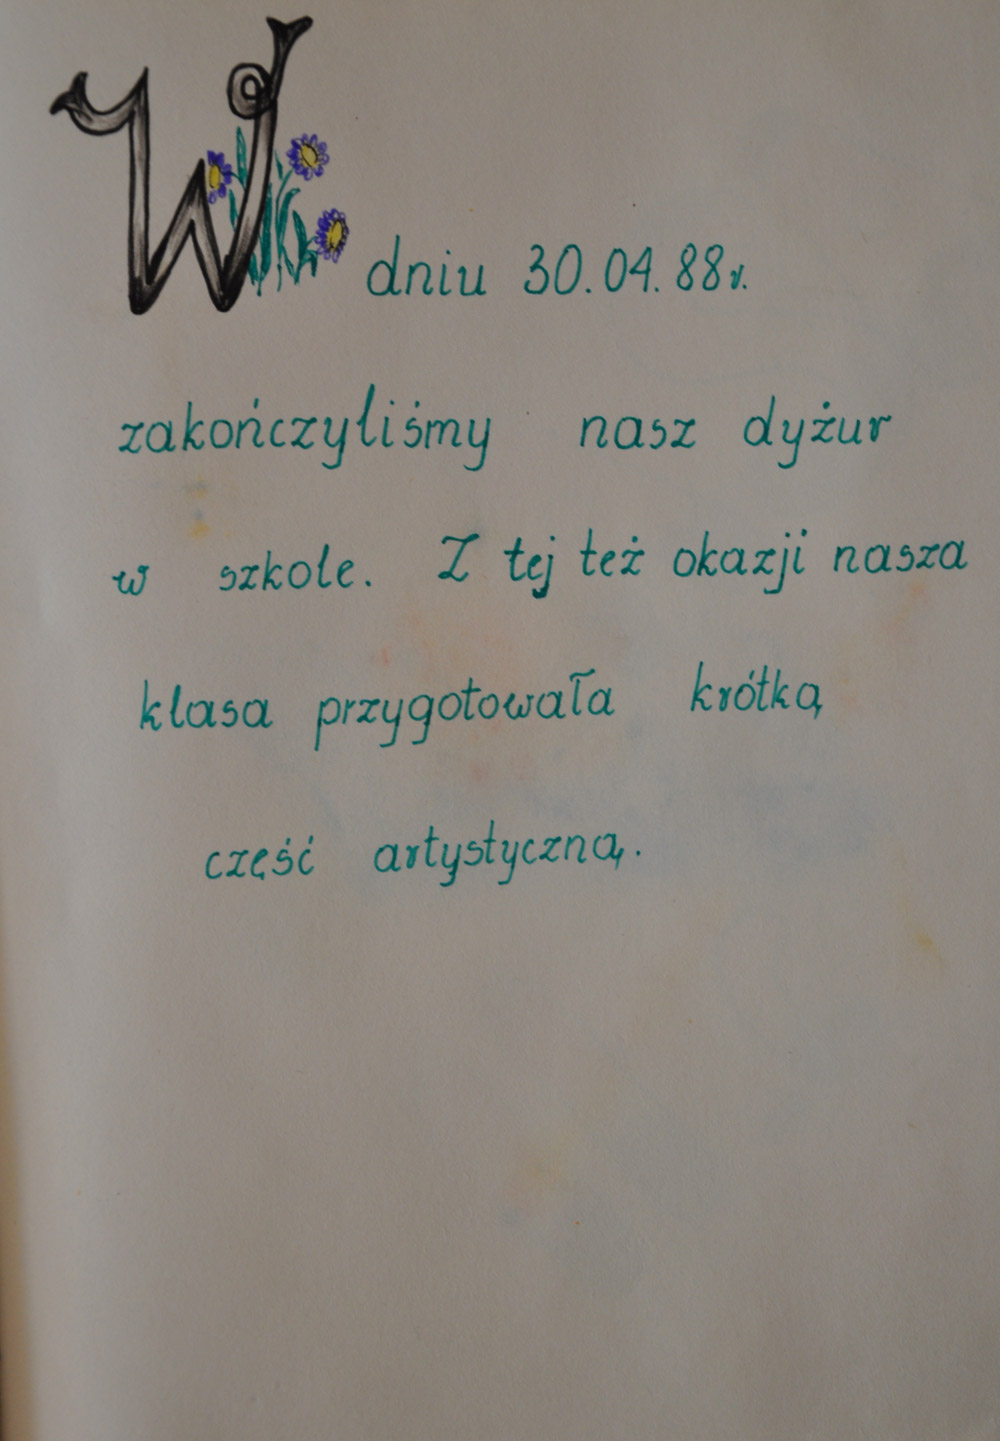 W dniu 30.04.88r.
zakończyliśmy nasz dyżur
w szkole. Z tej też okazji nasza
klasa przygotowała krótką
część artystyczną.